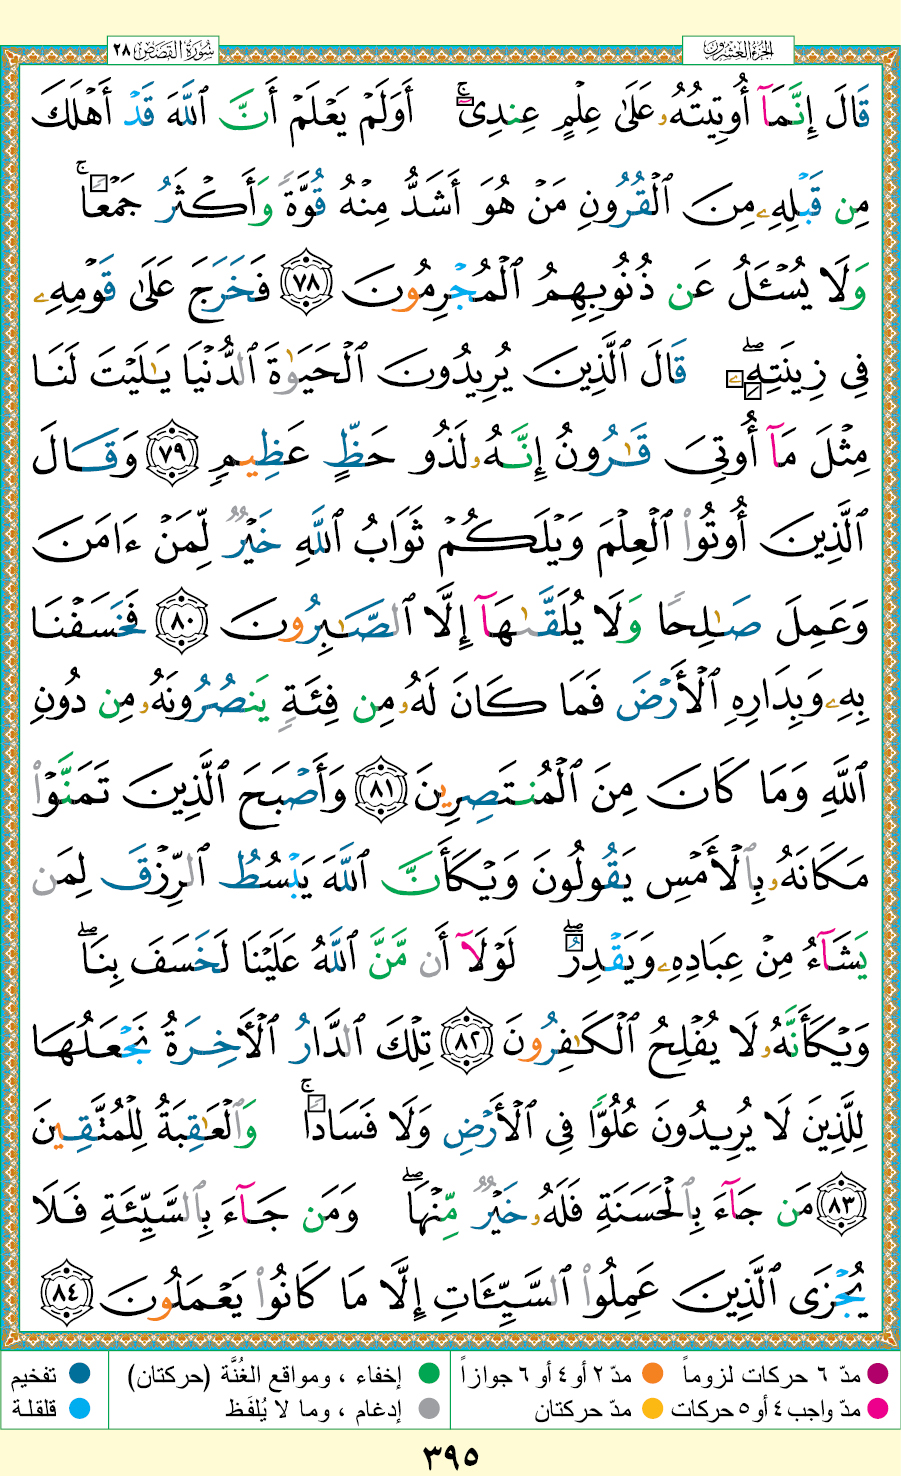 الجزء العشرون
سورة القصص ٢٨
قَالَ إِنَّمَآ أُوتِيتُهُۥ عَلَىٰ عِلْمٍ عِندِىٓ ۚ أَوَلَمْ يَعْلَمْ أَنَّ ٱللَّهَ قَدْ أَهْلَكَ
مِن قَبْلِهِۦ مِنَ ٱلْقُرُونِ مَنْ هُوَ أَشَدُّ مِنْهُ قُوَّةً وَأَكْثَرُ جَمْعًا ۚ
وَلَا يُسْـَٔلُ عَن ذُنُوبِهِمُ ٱلْمُجْرِمُونَ ٧٨ فَخَرَجَ عَلَىٰ قَوْمِهِۦ
فِى زِينَتِهِۦ ۖ قَالَ ٱلَّذِينَ يُرِيدُونَ ٱلْحَيَوٰةَ ٱلدُّنْيَا يَـٰلَيْتَ لَنَا
مِثْلَ مَآ أُوتِىَ قَـٰرُونُ إِنَّهُۥ لَذُو حَظٍّ عَظِيمٍ ٧٩ وَقَالَ
ٱلَّذِينَ أُوتُوا۟ ٱلْعِلْمَ وَيْلَكُمْ ثَوَابُ ٱللَّهِ خَيْرٌ لِّمَنْ ءَامَنَ
وَعَمِلَ صَـٰلِحًا وَلَا يُلَقَّىٰهَآ إِلَّا ٱلصَّـٰبِرُونَ ٨٠ فَخَسَفْنَا
بِهِۦ وَبِدَارِهِ ٱلْأَرْضَ فَمَا كَانَ لَهُۥ مِن فِئَةٍ يَنصُرُونَهُۥ مِن دُونِ
ٱللَّهِ وَمَا كَانَ مِنَ ٱلْمُنتَصِرِينَ ٨١ وَأَصْبَحَ ٱلَّذِينَ تَمَنَّوْا۟
مَكَانَهُۥ بِٱلْأَمْسِ يَقُولُونَ وَيْكَأَنَّ ٱللَّهَ يَبْسُطُ ٱلرِّزْقَ لِمَن
يَشَآءُ مِنْ عِبَادِهِۦ وَيَقْدِرُ ۖ لَوْلَآ أَن مَّنَّ ٱللَّهُ عَلَيْنَا لَخَسَفَ بِنَا ۖ
وَيْكَأَنَّهُۥ لَا يُفْلِحُ ٱلْكَـٰفِرُونَ ٨٢ تِلْكَ ٱلدَّارُ ٱلْـَٔاخِرَةُ نَجْعَلُهَا
لِلَّذِينَ لَا يُرِيدُونَ عُلُوًّا فِى ٱلْأَرْضِ وَلَا فَسَادًا ۚ وَٱلْعَـٰقِبَةُ لِلْمُتَّقِينَ
٨٣ مَن جَآءَ بِٱلْحَسَنَةِ فَلَهُۥ خَيْرٌ مِّنْهَا ۖ وَمَن جَآءَ بِٱلسَّيِّئَةِ فَلَا
يُجْزَى ٱلَّذِينَ عَمِلُوا۟ ٱلسَّيِّـَٔاتِ إِلَّا مَا كَانُوا۟ يَعْمَلُونَ ٨٤
مدّ ٦ حركات لزوماً مدّ ٢ أو ٤ أو ٦ جوازاً إخفاء ، ومواقع الغُنَّة (حركتان) تفخيم
مدّ واجب ٤ أو ٥ حركات مدّ حركتان إدغام ، وما لا يُلفَظ قلقلة
٣٩٥